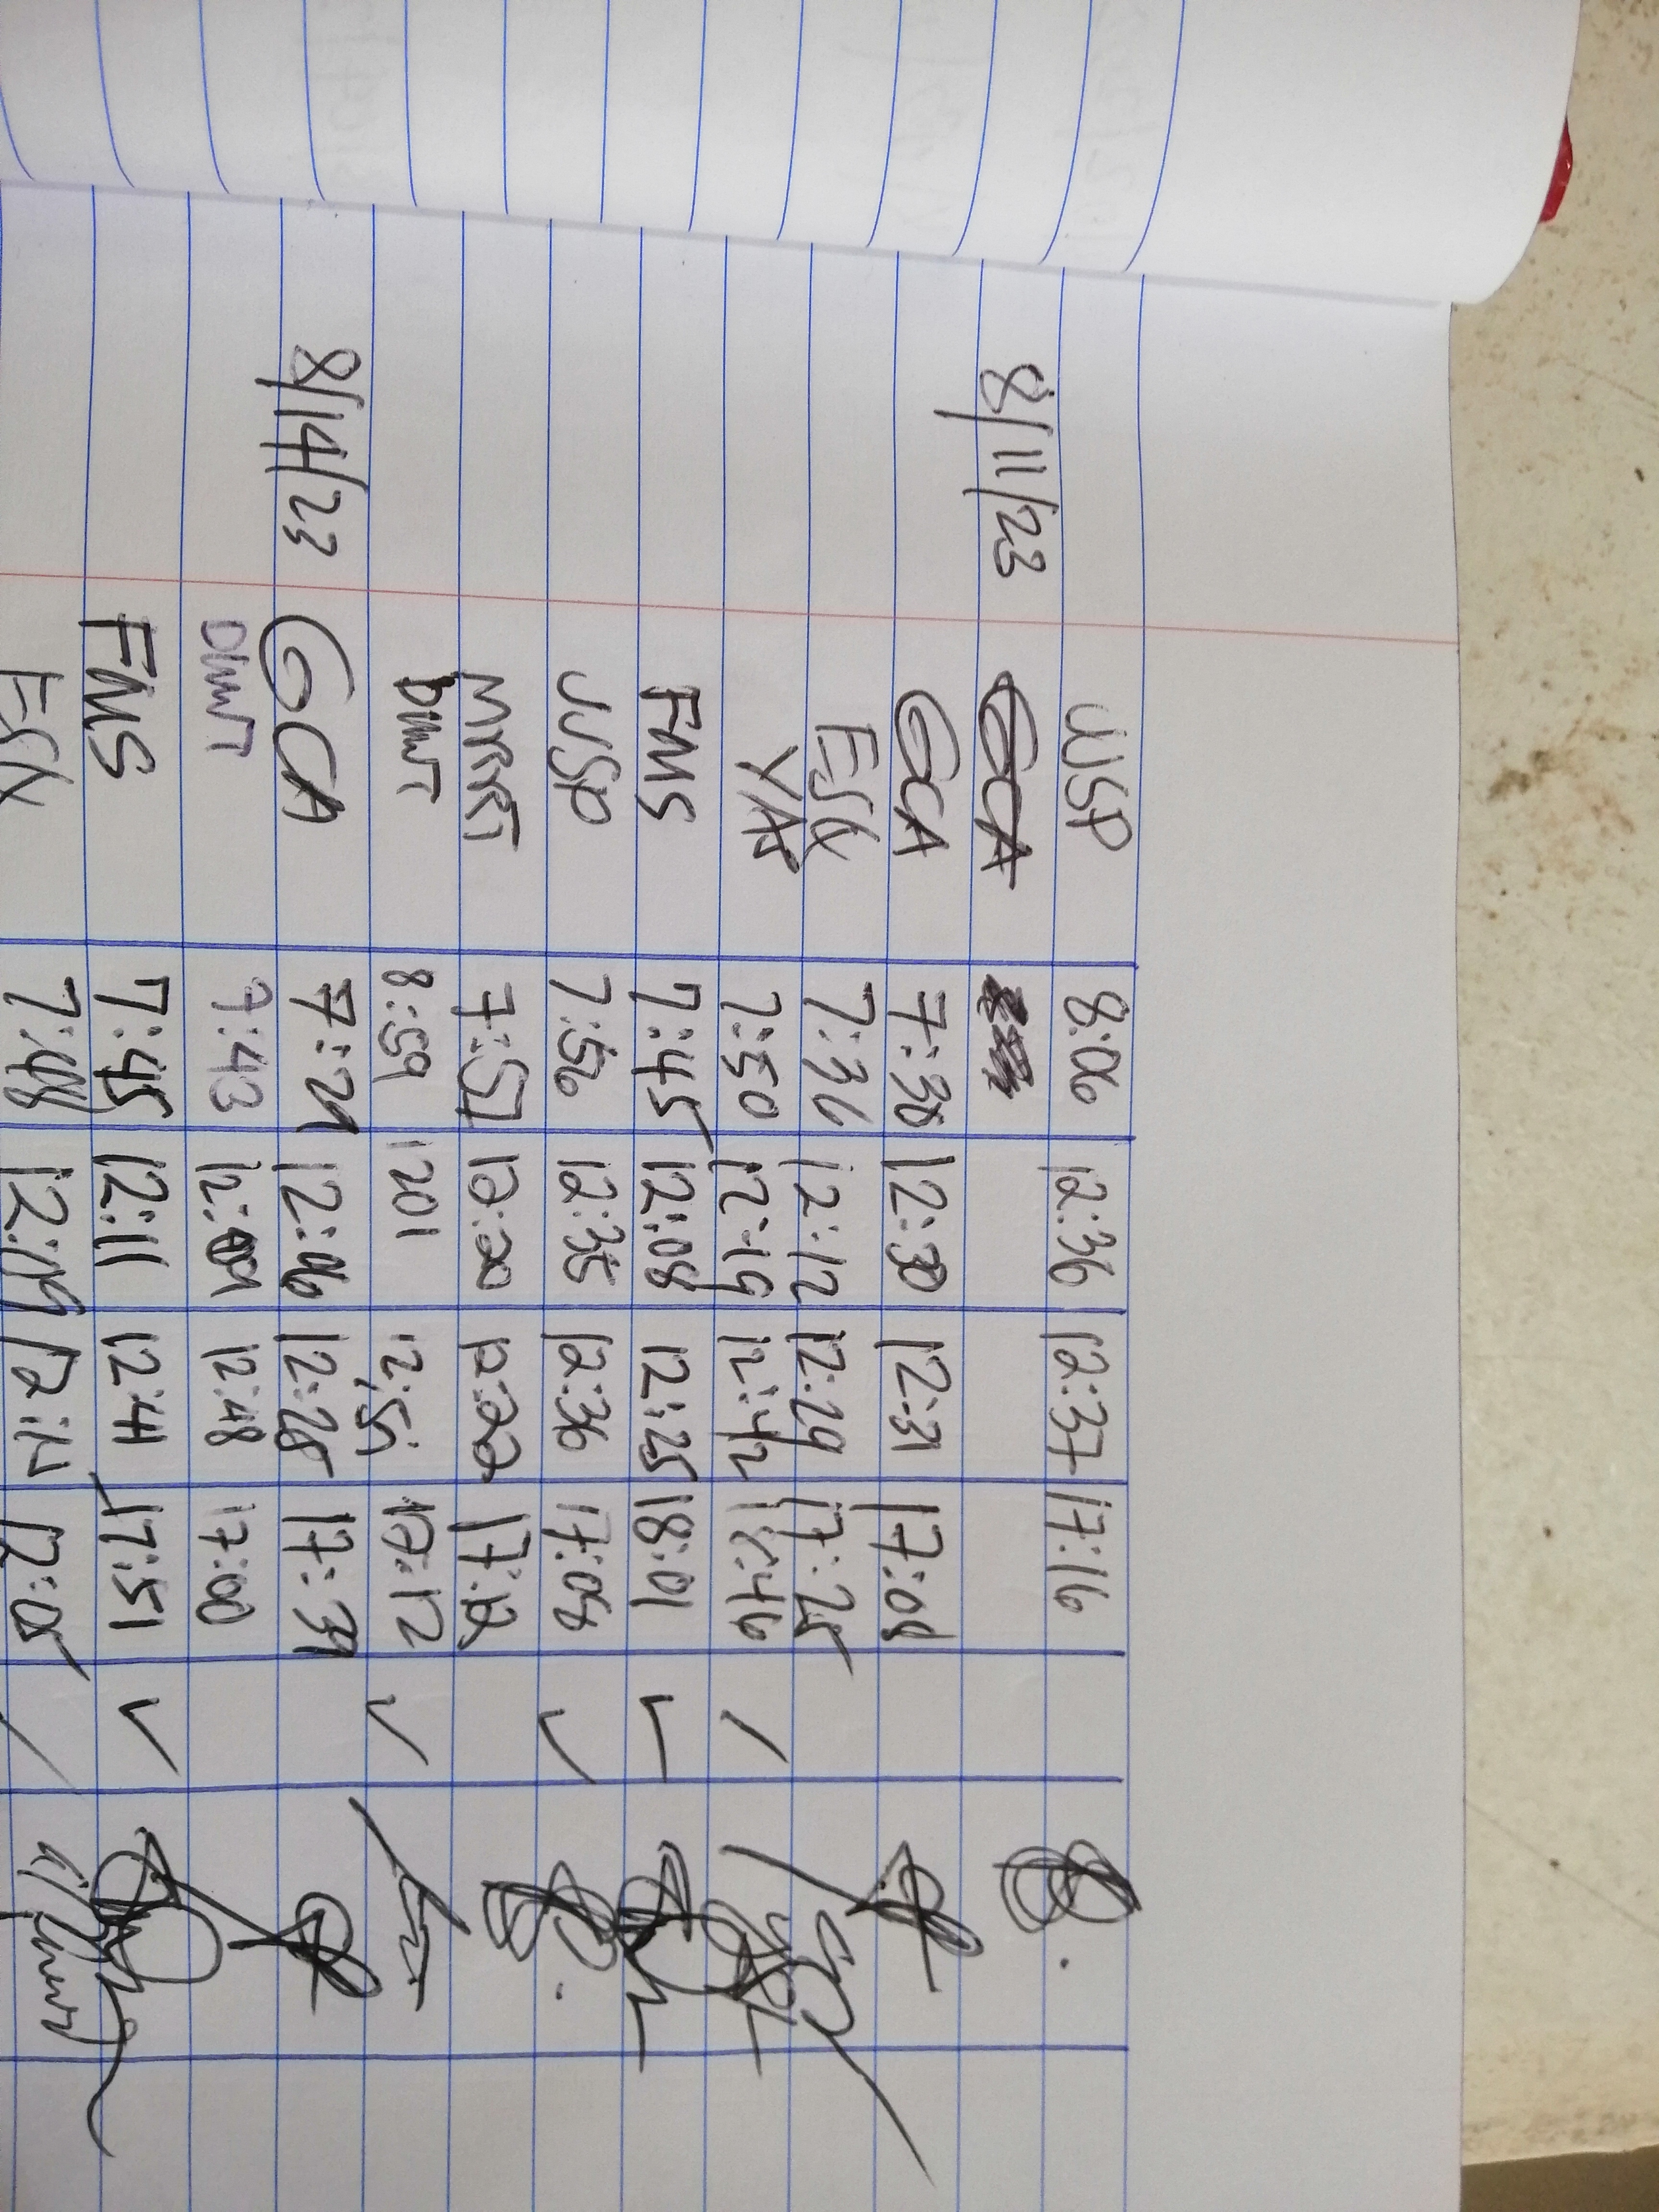 JUSP 8:06 12:36 12:37 17:16
8/11/23 GCA
GCA 7:38 12:30 12:31 17:08
ESQ 7:36 12:12 12:29 17:25
YAP 7:50 12:19 12:42
FMS 7:45 12:08 12:25 18:01
JUSP 7:56 12:35 12:36 17:08
7:57 17:12
8:59 1201 12:51 17:12
8/14/23 GCA 7:29 12:06 12:28 17:39
7:43 12:09 12:48 17:00
FMS 7:45 12:11 12:41 17:51
ESQ 7:48 12:09 12:14 12:05